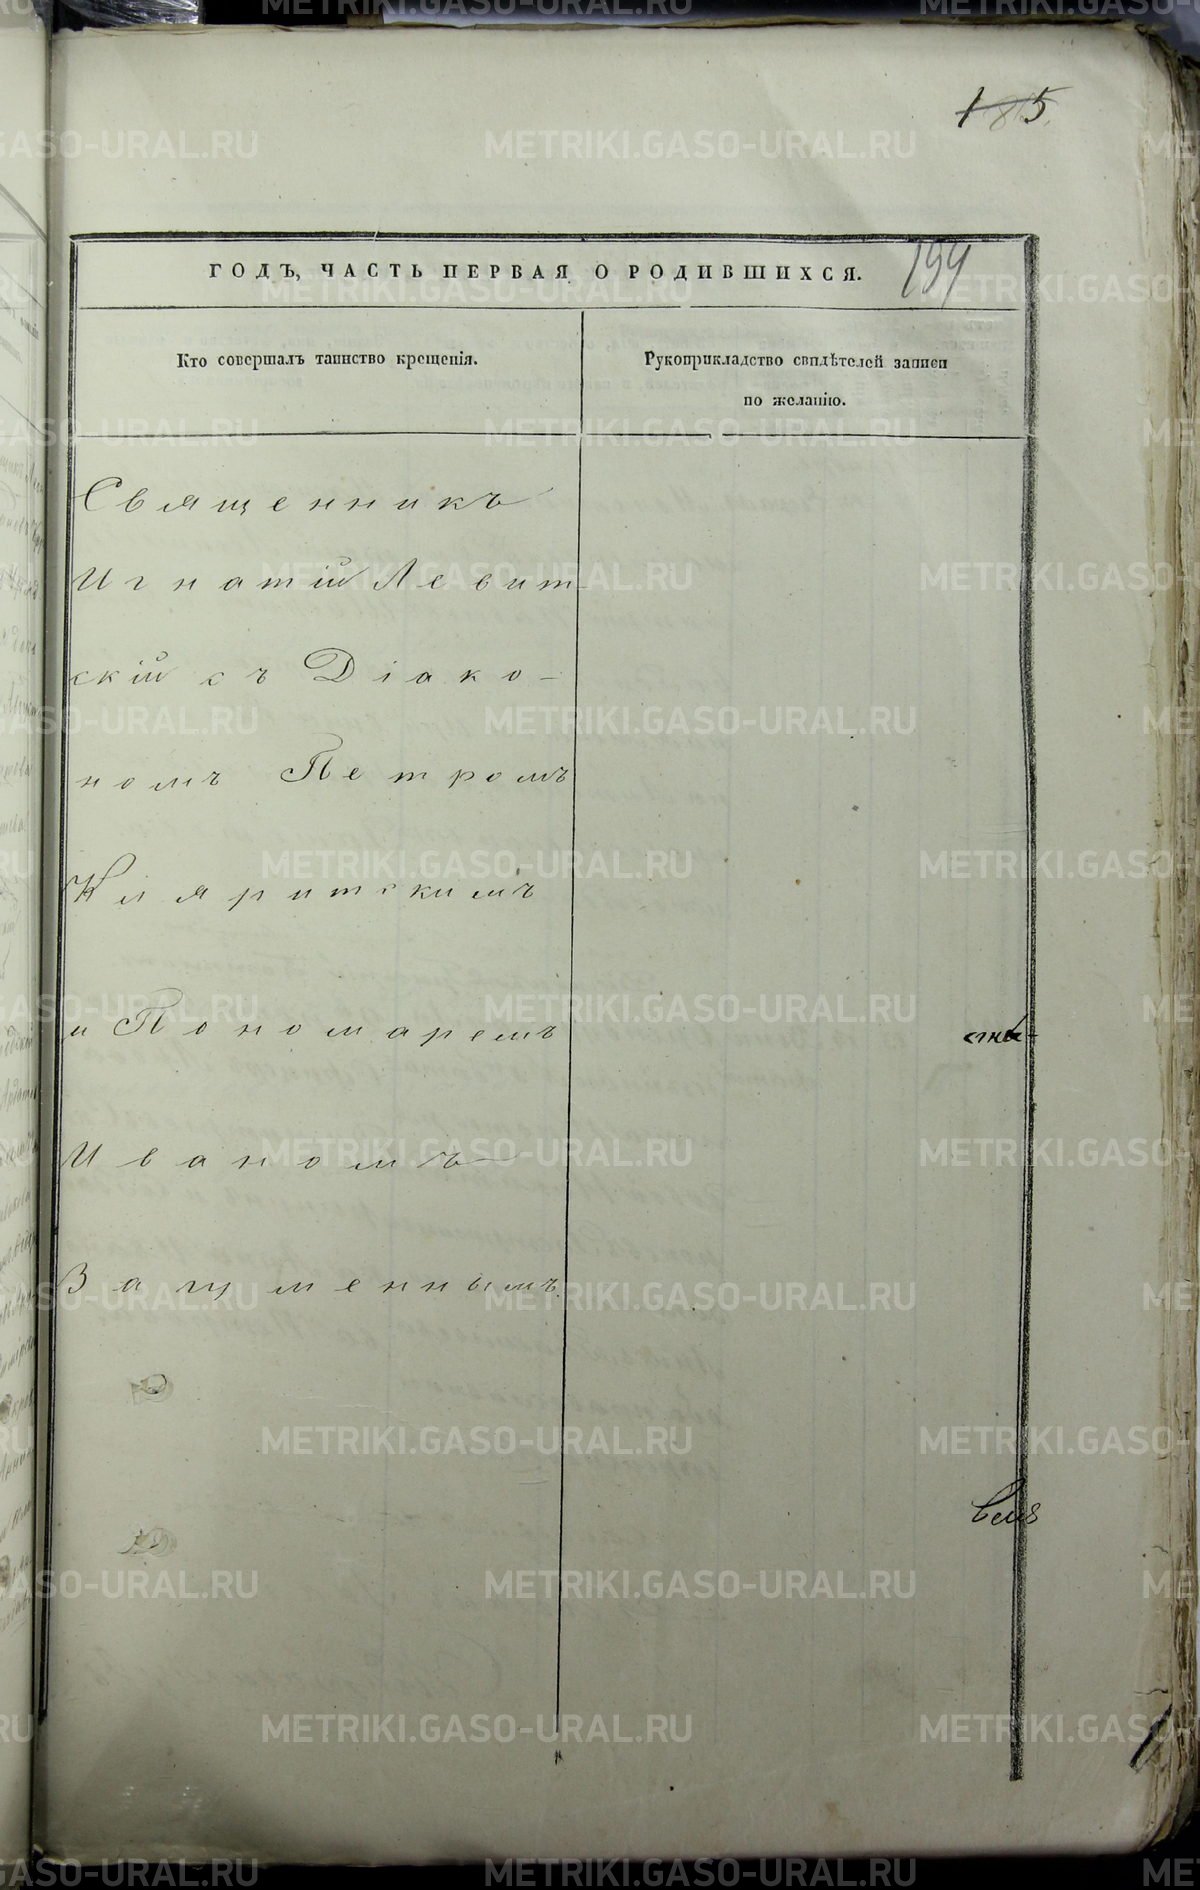 185
ГОДЪ, ЧАСТЬ ПЕРВАЯ О РОДИВШИХСЯ.
194
Кто совершалъ таинство крещенія.
Рукоприкладство свидѣтелей записи
по желанію.
Священникъ
Игнатій Левит
скій съ Діако-
номъ Петромъ
Кляритскимъ
и Пономаремъ
Иваномъ
Вагуменнымъ
METRIKI.GASO-URAL.RU